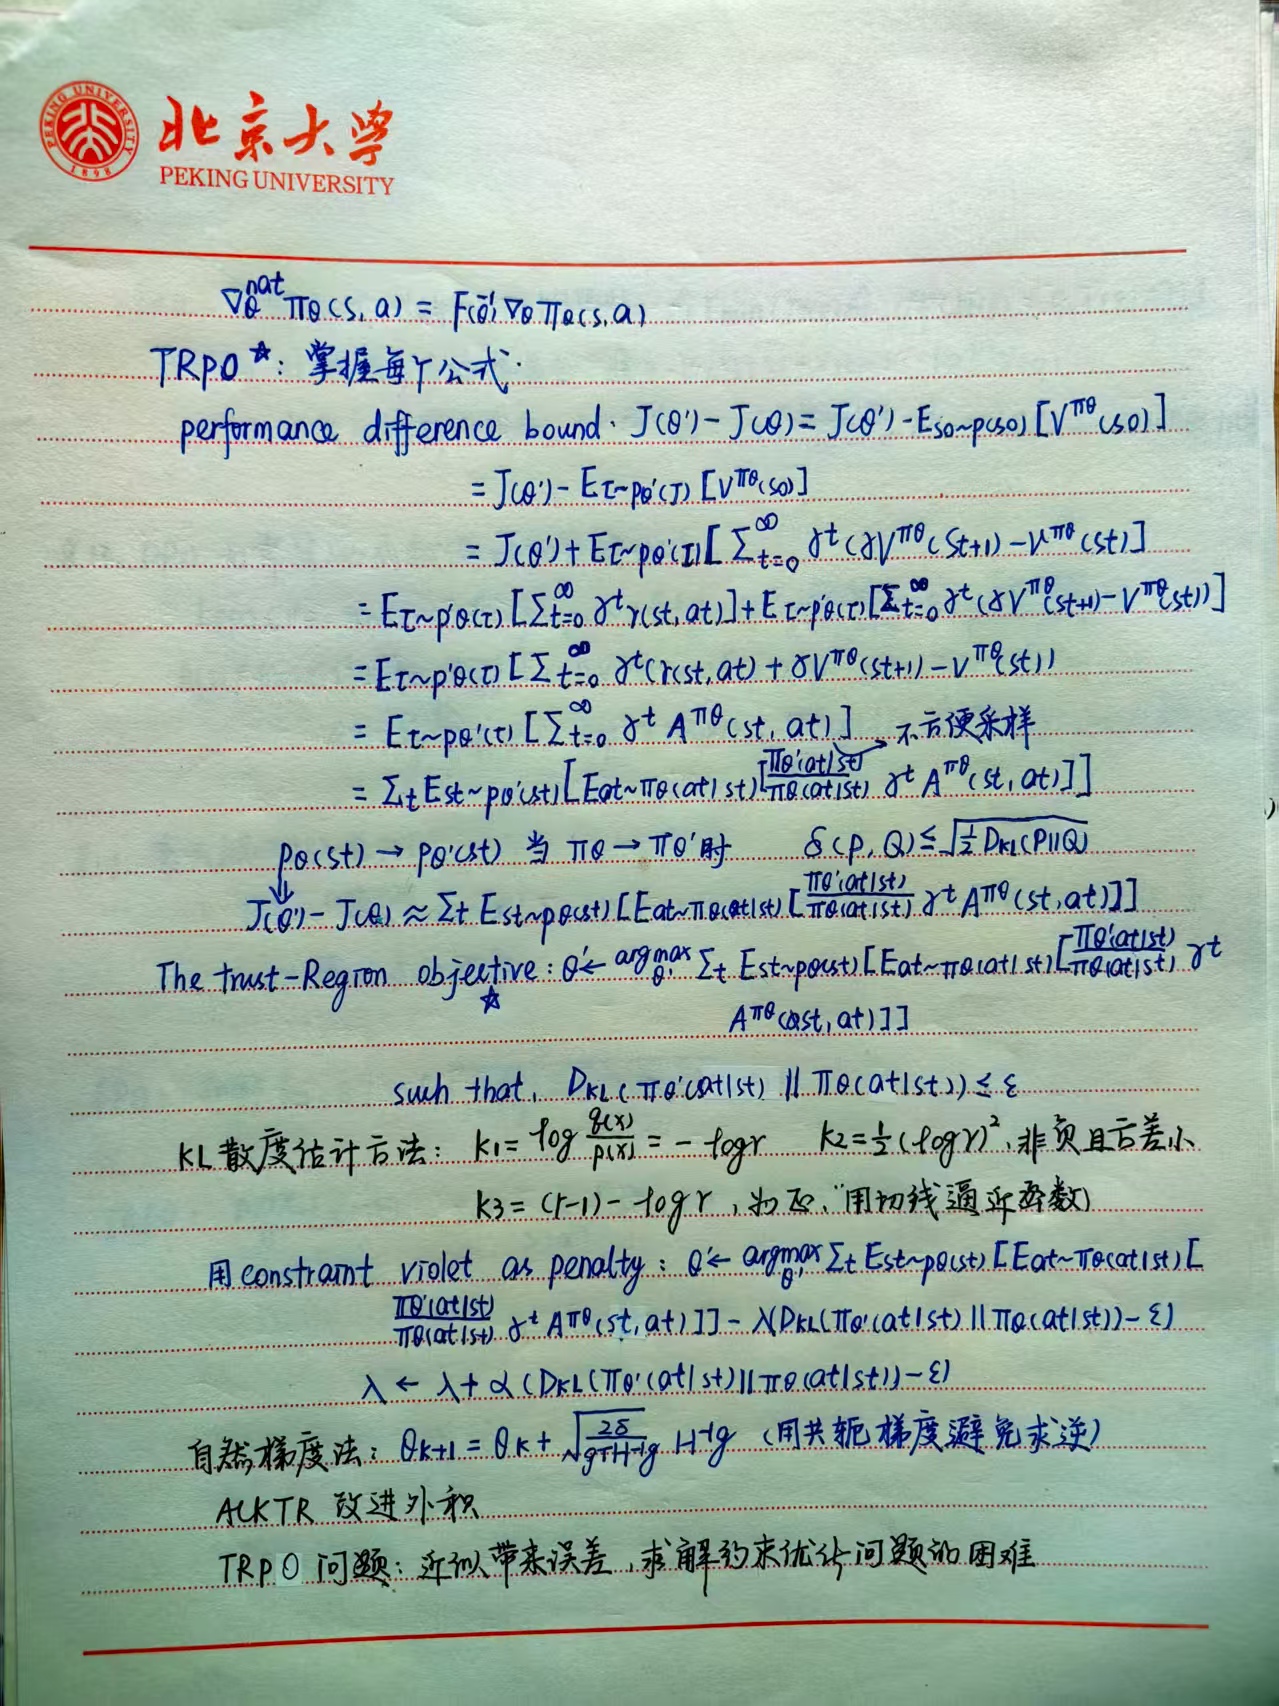 PEKING UNIVERSITY
1898
北京大学
PEKING UNIVERSITY
∇θ^nat πθ(s,a) = F(θ)^-1 ∇θ πθ(s,a)
TRPO☆: 掌握每个公式.
performance difference bound. J(θ')-J(θ) = J(θ')-E_{s0~p(s0)}[V^πθ(s0)]
= J(θ') - E_{τ~pθ'(τ)}[V^πθ(s0)]
= J(θ') + E_{τ~pθ'(τ)}[Σ_{t=0}^∞ γ^t(γV^πθ(st+1) - V^πθ(st)]
= E_{τ~p'θ(τ)}[Σ_{t=0}^∞ γ^t r(st,at)] + E_{τ~p'θ(τ)}[Σ_{t=0}^∞ γ^t(γV^πθ(st+1) - V^πθ(st))]
= E_{τ~p'θ(τ)}[Σ_{t=0}^∞ γ^t(r(st,at) + γV^πθ(st+1) - V^πθ(st))
= E_{τ~pθ'(τ)}[Σ_{t=0}^∞ γ^t A^πθ(st,at)] → 不方便采样
= Σt E_{st~pθ'(st)}[E_{at~πθ(at|st)}[πθ'(at|st)/πθ(at|st) γ^t A^πθ(st,at)]]
pθ(st) → pθ'(st) 当 πθ → πθ' 时 δ(P,Q) ≤ √(1/2 DKL(P||Q))
↓
J(θ')-J(θ) ≈ Σt E_{st~pθ(st)}[E_{at~πθ(at|st)}[πθ'(at|st)/πθ(at|st) γ^t A^πθ(st,at)]]
The trust-Region objective: θ' ← argmax_θ' Σt E_{st~pθ(st)}[E_{at~πθ(at|st)}[πθ'(at|st)/πθ(at|st) γ^t
☆
A^πθ(st,at)]]
such that, DKL(πθ'(at|st) || πθ(at|st)) ≤ ε
KL散度估计方法: k1 = log q(x)/p(x) = -logr k2 = 1/2(logr)^2, 非负且方差小
k3 = (r-1) - logr, 为正, "用切线逼近函数)
用constraint violet as penalty: θ' ← argmax_θ' Σt E_{st~pθ(st)}[E_{at~πθ(at|st)}[
πθ'(at|st)/πθ(at|st) γ^t A^πθ(st,at)]] - λ(DKL(πθ'(at|st) || πθ(at|st)) - ε)
λ ← λ + α(DKL(πθ'(at|st) || πθ(at|st)) - ε)
自然梯度法: θk+1 = θk + √(2δ/g^T H^-1 g) H^-1 g (用共轭梯度避免求逆)
ACKTR 改进外积
TRPO 问题: 近似带来误差, 求解约束优化问题的困难